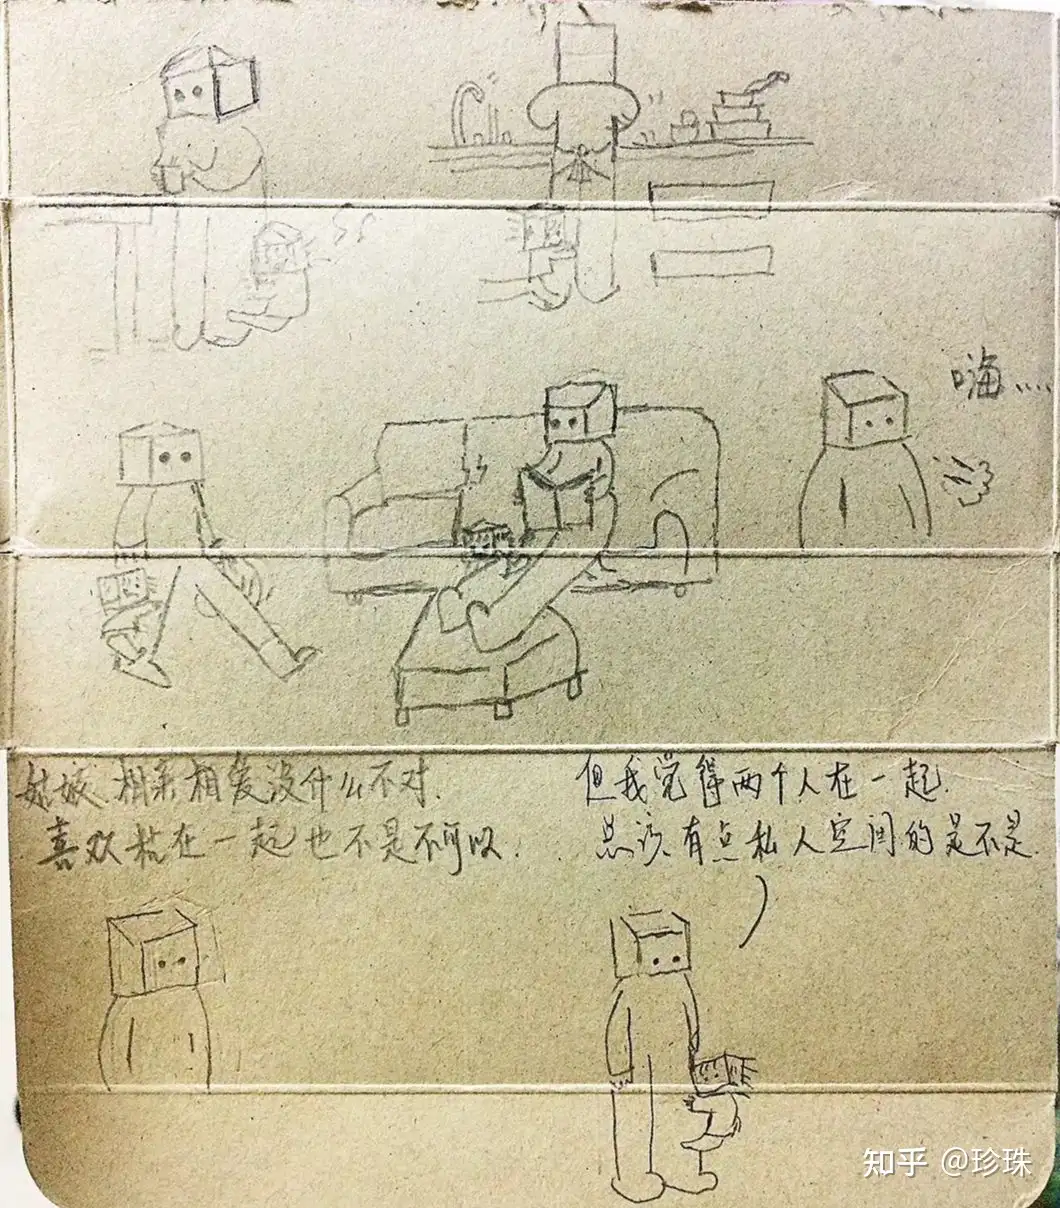 嗨....
姑娘.相亲相爱没什么不对.
喜欢粘在一起也不是不可以.
但我觉得两个人在一起.
总该有点私人空间的是不是.
知乎 @珍珠